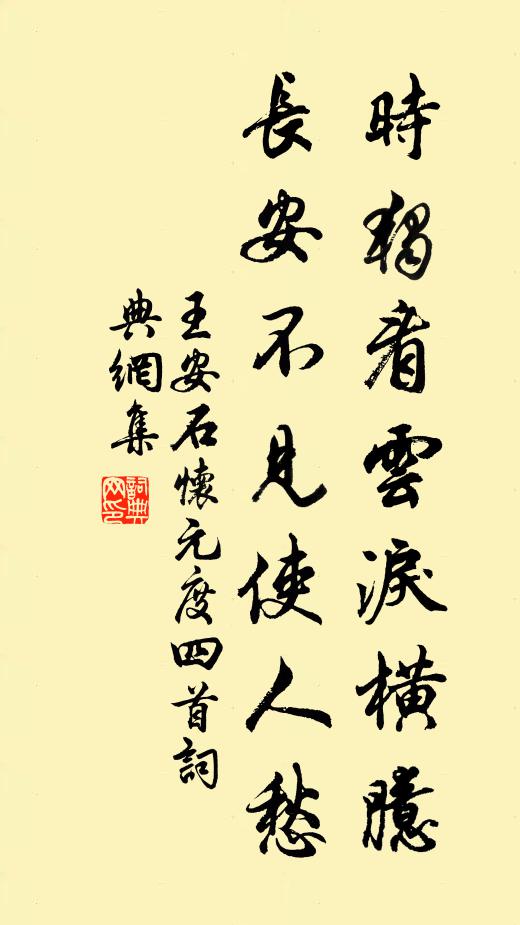 時獨看雲淚橫臆
長安不見使人愁
王安石懷元度四首詞
典網集
詞典網印